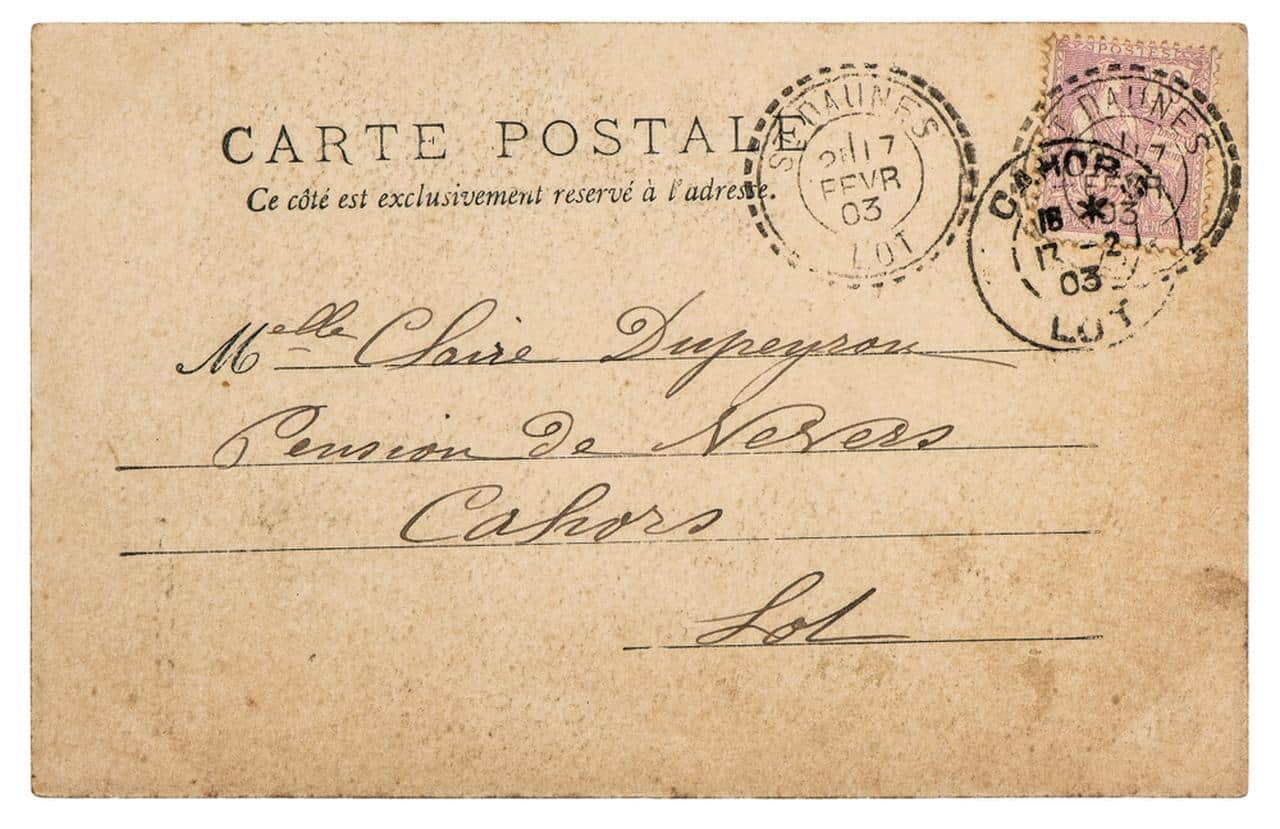 CARTE POSTALE
Ce côté est exclusivement reservé à l'adresse.
St DAUNES
17
FEVR
03
LOT
POSTES
DAUNES
17
FEVR
03
CAHORS
*
17 - 2
03
LOT
Melle Claire Dupeyron
Pension de Nevers
Cahors
Lot